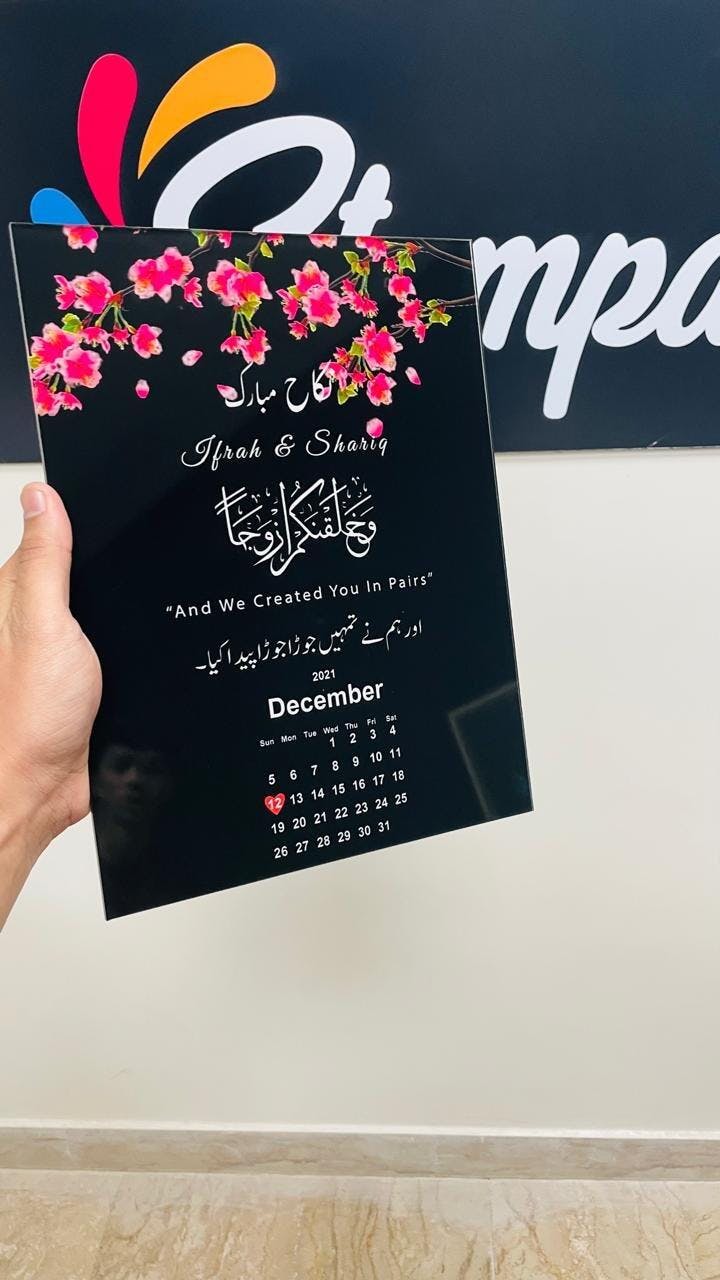 Stampa
نکاح مبارک
Ifrah & Shariq
وَخَلَقْنَكُمْ اَزْوَجًا
“And We Created You In Pairs”
اور ہم نے تمہیں جوڑا جوڑا پیدا کیا۔
2021
December
Sun Mon Tue Wed Thu Fri Sat
1 2 3 4
5 6 7 8 9 10 11
12 13 14 15 16 17 18
19 20 21 22 23 24 25
26 27 28 29 30 31